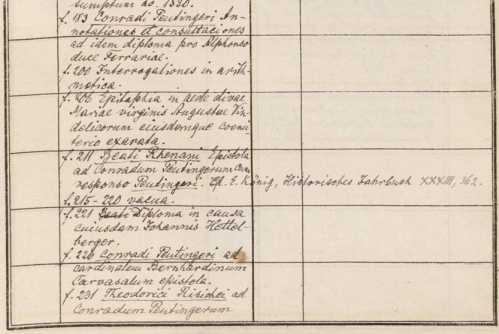 sumptum ao. 1530.
f. 183 Conradi Peutingeri An-
notationes et consultaciones
ad idem diploma pro Alphonso
duce Ferrariae.
f. 200 Interrogationes in arith-
metica.
f. 206 Epitaphia in aede divae
Mariae virginis Augustae Vin-
delicorum eiusdemque coemi-
terio exarata.
f. 211 Beati Rhenani Epistola
ad Conradum Peutingerum cum
responso Peutingeri. Ed. E. König, Historisches Jahrbuch XXXIII, 362.
f. 215-220 vacua.
f. 221 Diploma in causa
cuiusdam Johannis Hettel-
berger.
f. 226 Conradi Peutingeri ad
cardinalem Bernhardinum
Carvasalum epistola.
f. 231 Theodorici ad
Conradum Peutingerum